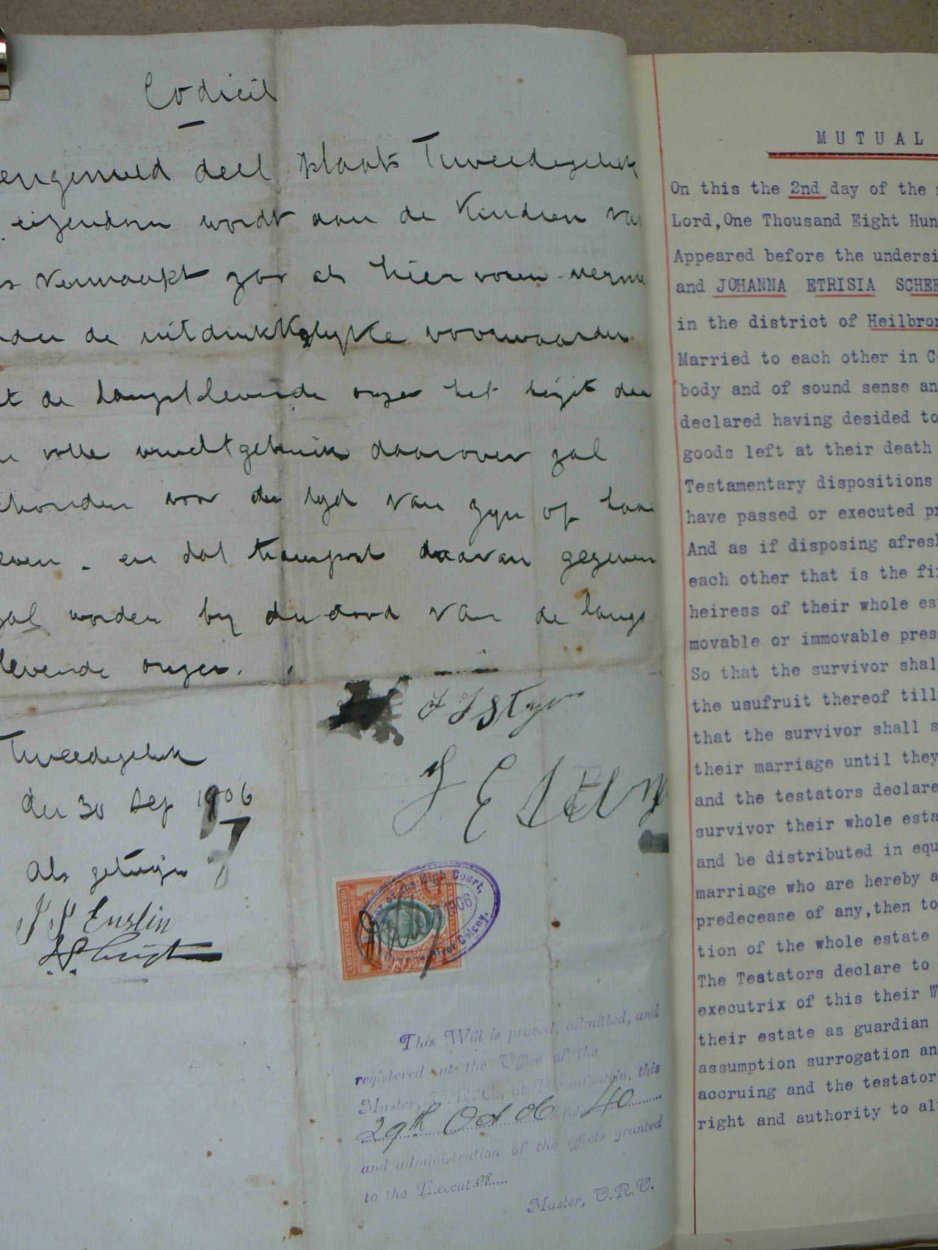 Codicil
deel plaats Tweedegeluk
eigendom wordt aan de Kinderen
Vermaakt zoo als hier voren
de uitdrukkelyke voorwaarden
de langstlevende onzer het zy
volle vruchtgebruik daarover zal
voor den tyd van zyn of haar
en dat transport daarvan gegeven
zal worden by den dood van de langst
levende onzer.
Tweedegeluk
den 30 Sep 1906
Als getuigen
This Will is proved, admitted, and
registered at the Office of the
Master, O.R.C., at Bloemfontein, this
29th
and administration of the effects granted
to the Execut
Master, O.R.C.
MUTUAL
On this the 2nd day of the
Lord, One Thousand Eight Hun
Appeared before the undersi
and JOHANNA ETRISIA SCHE
in the district of Heilbron
Married to each other in C
body and of sound sense an
declared having desided to
goods left at their death
Testamentary dispositions
have passed or executed pr
And as if disposing afresh
each other that is the fi
heiress of their whole es
movable or immovable pres
So that the survivor shal
the usufruit thereof till
that the survivor shall s
their marriage until they
and the testators declare
survivor their whole esta
and be distributed in equ
marriage who are hereby a
predecease of any, then to
tion of the whole estate
The Teatators declare to
executrix of this their W
their estate as guardian
assumption surrogation an
accruing and the testator
right and authority to al